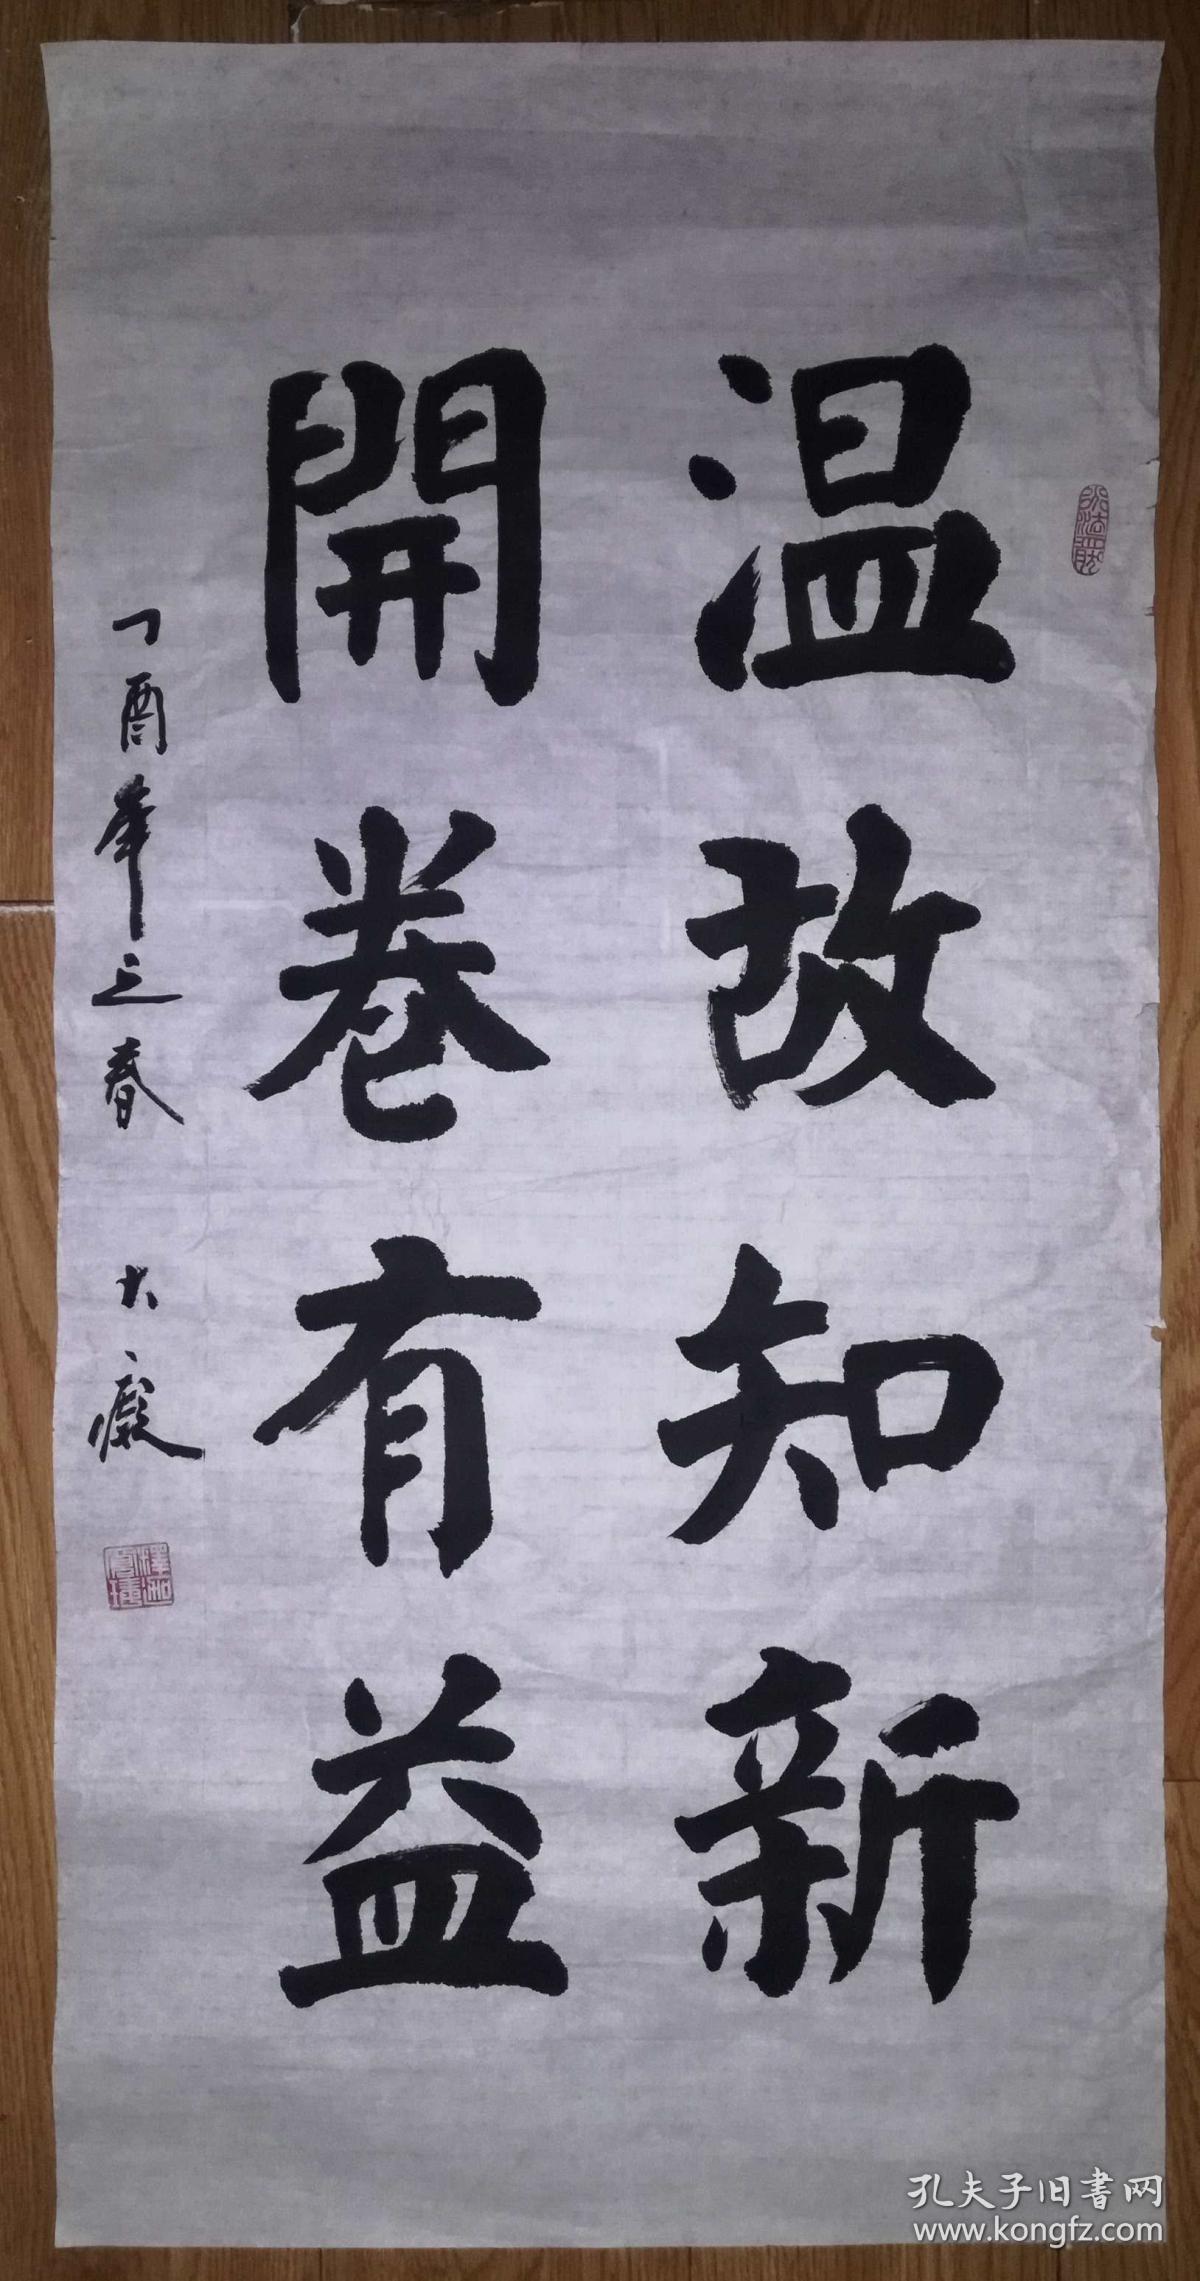 温故知新
開卷有益
丁酉年之春
大癡
孔夫子旧書网
www.kongfz.com